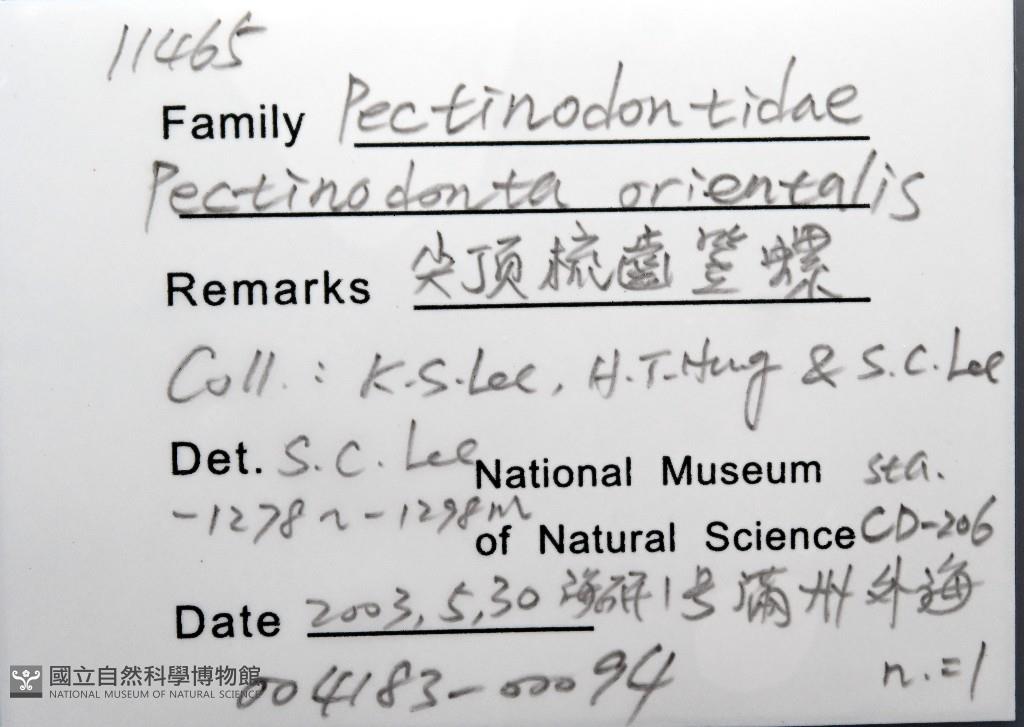 11465
Family Pectinodontidae
Pectinodonta orientalis
Remarks 尖顶梳齒笠螺
Coll. : K.S.Lee, H.T.Hung & S.C.Lee
Det. S.C. Lee National Museum sta.
-1278~-1298m of Natural Science CD-206
Date 2003.5.30 海研1号 滿州外海
004183-00094 n.=1
國立自然科學博物館
NATIONAL MUSEUM OF NATURAL SCIENCE